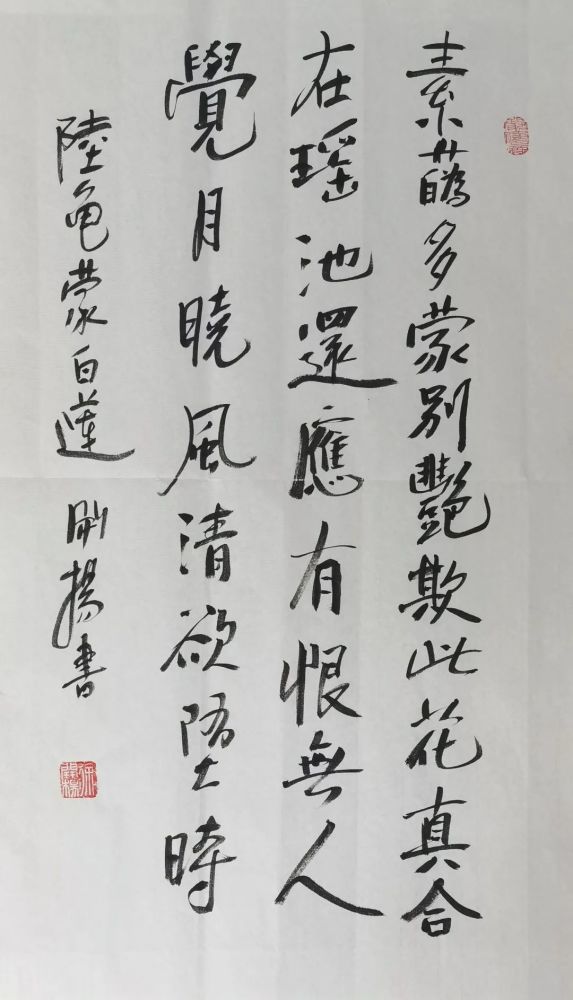 素蘤多蒙別艷欺此花真合
在瑤池還應有恨無人
覺月曉風清欲墮時
陸龜蒙白蓮 揚書